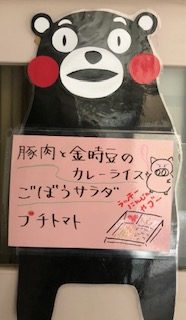 豚肉と金時豆の
カレーライス
ごぼうサラダ
プチトマト
ラッキー
にんじん